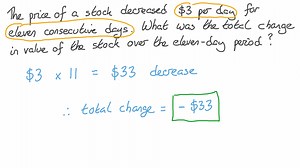 The price of a stock decreased $3 per day for
eleven consecutive days. What was the total change
in value of the stock over the eleven-day period?
$3 × 11 = $33 decrease
∴ total change = -$33